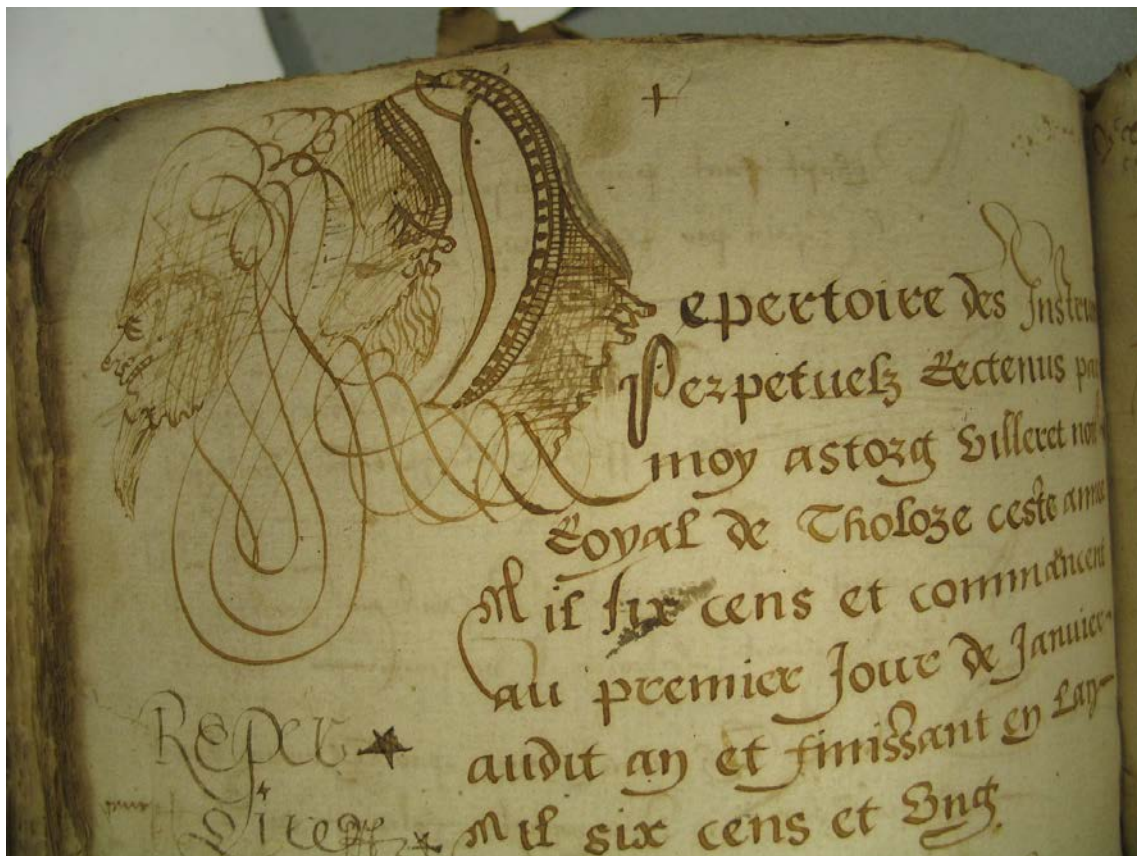 Repertoire des Instru
Perpetuelz Rectenus par
moy astorg Villeret not
Royal de Tholoze ceste annee
Mil six cens et commancent
au premier Jour de Janvier
audit an et finissant en Lan
Mil six cens et Ung
Reper